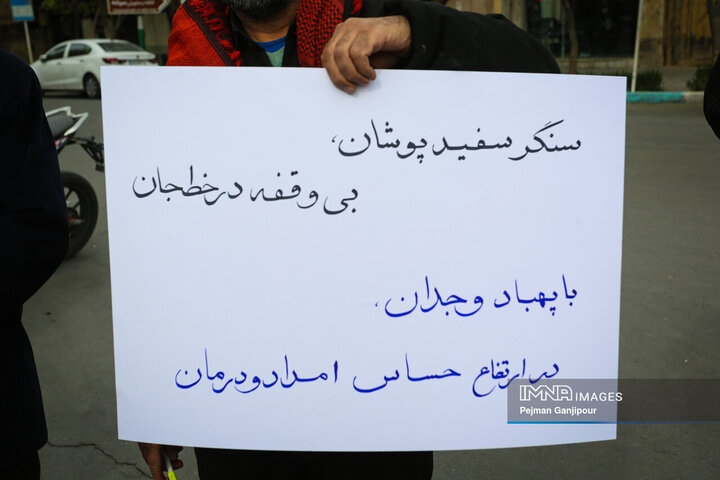 سنگر سفید پوشان،
بی وقفه در خط جان
با پهپاد وجدان،
در ارتفاع حساس امداد و درمان
IMNA IMAGES
Pejman Ganjipour